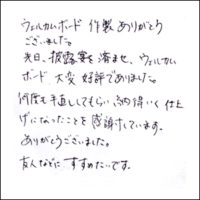 ウェルカムボード 作製 ありがとう
ございました。
先日、披露宴を済ませ、ウェルカム
ボード、大変 好評でありました。
何度も手直ししてもらい、納得いく仕上
げになったことを感謝しています。
ありがとうございました。
友人などに すすめたいです。